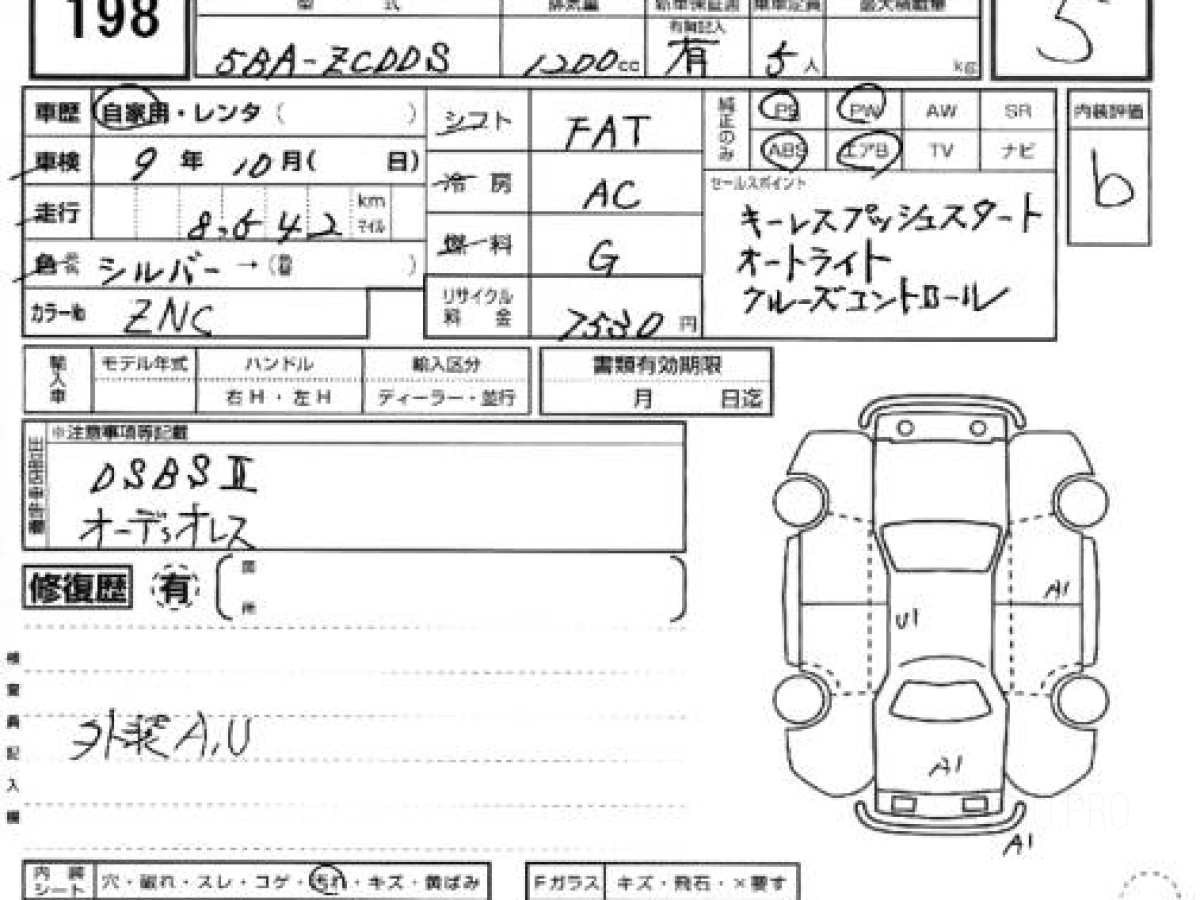 198
型 式 排気量 新車保証書 乗車定員 最大積載量
有無記入
5BA-ZCDDS 1200cc 有 5人 kg
5
車歴 自家用・レンタ( )
車検 9年 10月( 日)
走行 8,642 km マイル
色 シルバー →( )
カラーNo ZNC
シフト FAT
冷房 AC
燃料 G
リサイクル料金 7530円
純正のみ PS PW AW SR
ABS エアB TV ナビ
セールスポイント
キーレスプッシュスタート
オートライト
クルーズコントロール
内装評価
b
輸入車 モデル年式 ハンドル 輸入区分
右H・左H ディーラー・並行
書類有効期限
月 日迄
※注意事項等記載
DSBSⅡ
オーディオレス
修復歴 有
箇所
検査員記入欄
外装A,U
U1
A1
A1
A1
内装シート 穴・破れ・スレ・コゲ・汚れ・キズ・黄ばみ
Fガラス キズ・飛石・×要す
PRO